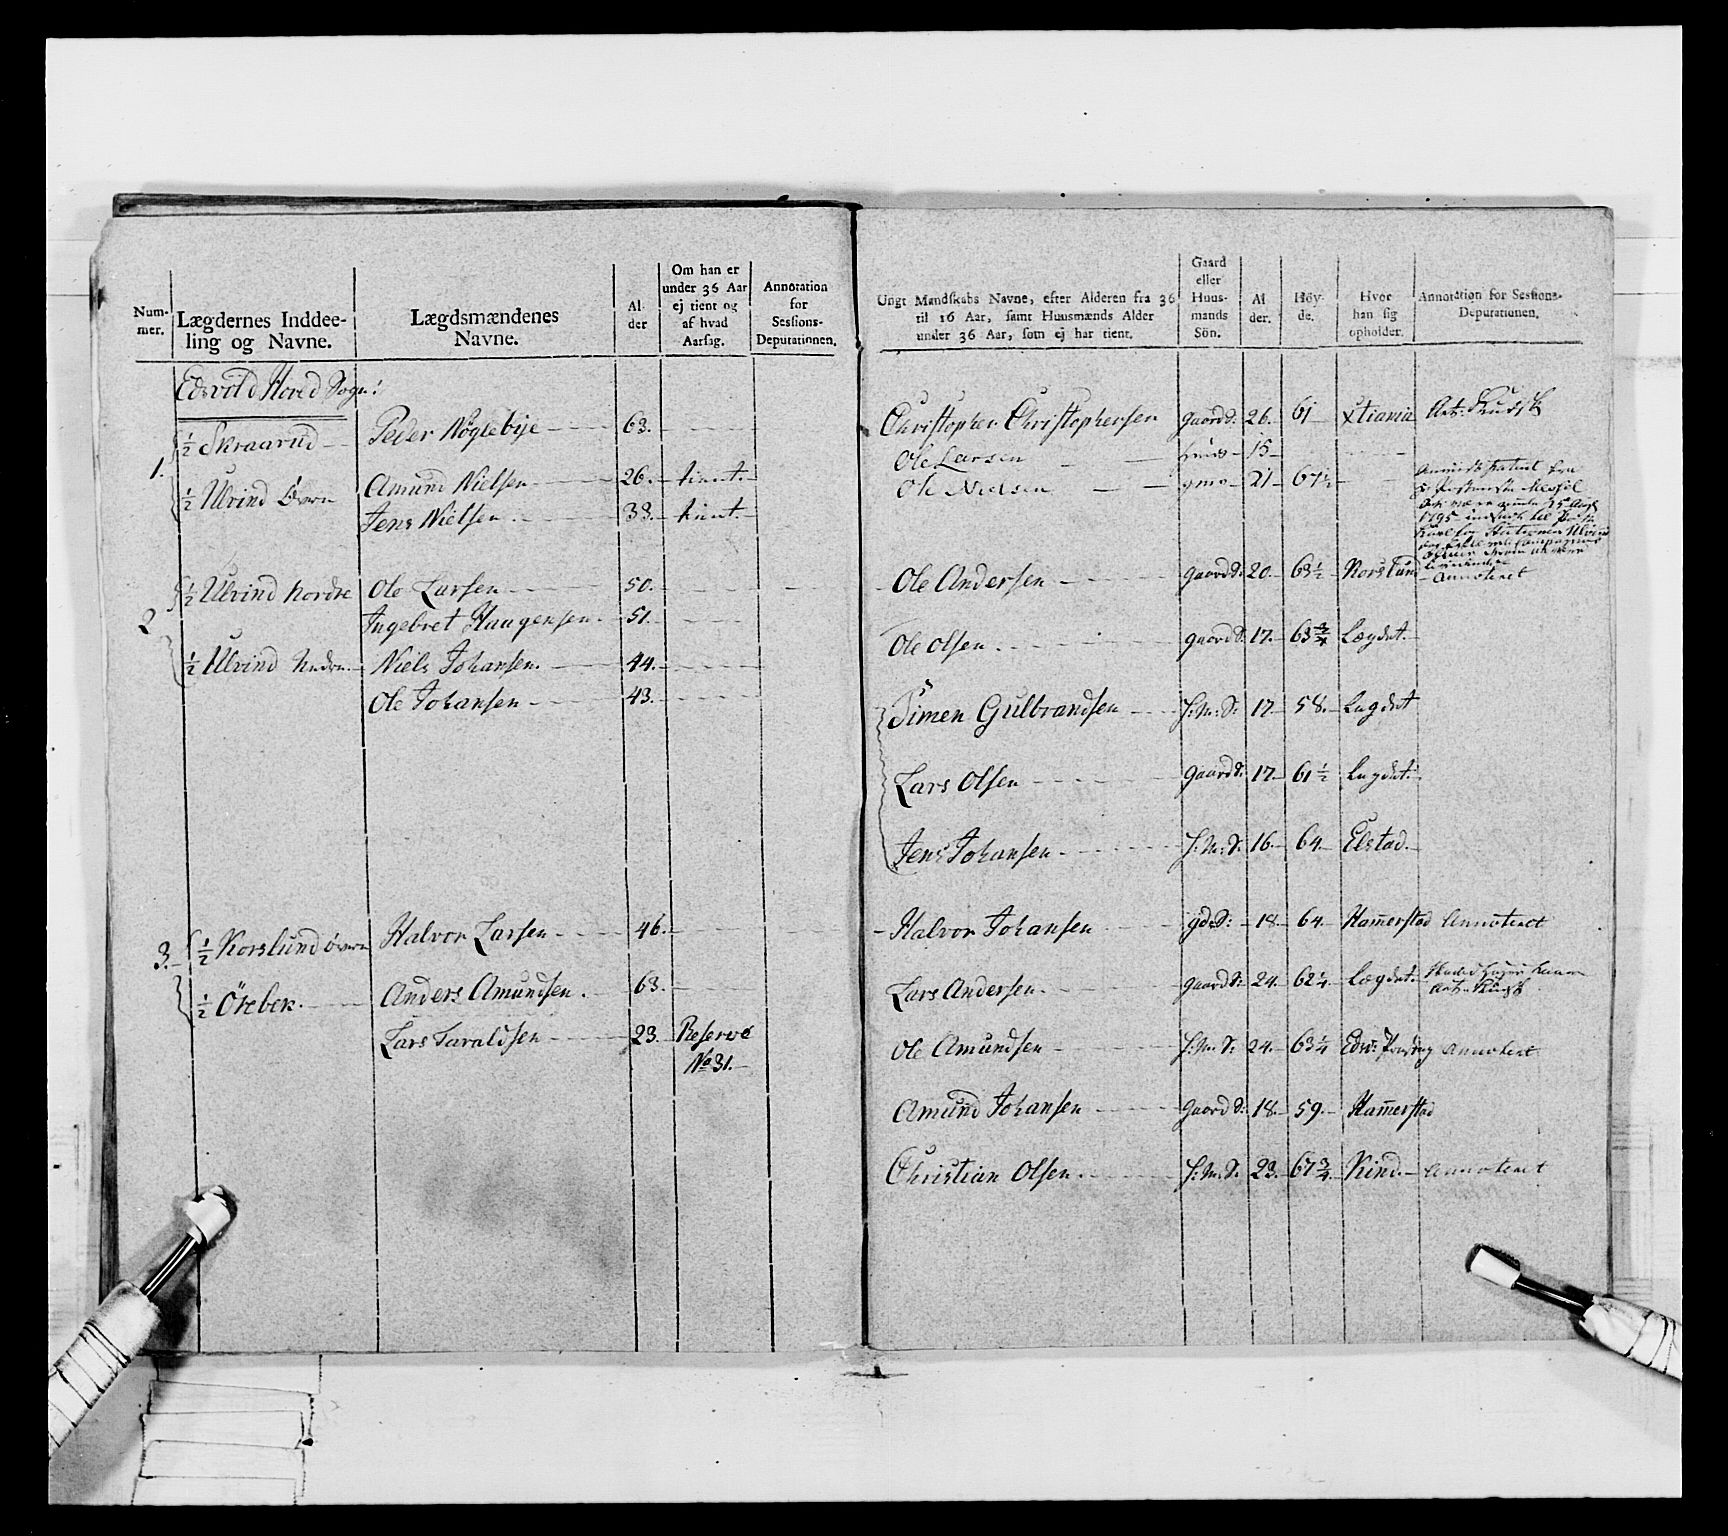 Num-
mer.
Lægdernes Inddee-
ling og Navne.
Lægdsmændenes
Navne.
Al-
der
Om han er
under 36 Aar
ej tient og
af hvad
Aarsag.
Annotation
for
Sessions-
Deputationen.
Edsvold Hoved Sogn:
1.
½ Skraarud
Peder Nöglebye 63.
½ Ulvind Övern
Amund Nielsen 26. tient.
Jens Nielsen 33. tient
2
½ Ulvind Nordre
Ole Larsen 50.
Ingebret Haagensen 51.
½ Ulvind Nedre
Niels Johansen. 44.
Ole Johansen 43.
3.
½ Korslund övern
Halvor Larsen 46.
½ Ökbek.
Anders Amundsen. 63.
Lars Taraldsen 23. Reserve
No 31.
Ungt Mandskabs Navne, efter Alderen fra 36
til 16 Aar, samt Huusmænds Alder
under 36 Aar, som ej har tient.
Gaard
eller
Huus-
mands
Sön.
Al
der.
Höy-
de.
Hvor
han sig
opholder.
Annotation for Sessions-
Deputationen.
Christopher Christophersen gaard S. 26. 61 Xtiania
Ole Larsen 15
Ole Nielsen 21 67½
1795
Ole Andersen gaard S. 20. 63½ Korslund Annoteret
Ole Olsen. gaard S. 17. 63¾ Lægdet.
Simen Gulbrandsen H. M. S. 17 58. Lægdet
Lars Olsen gaard S. 17. 61½ Lægdet.
Jens Johansen H. M. S. 16. 64. Elstad.
Halvor Johansen gd. S: 18. 64. Hammerstad Annoteret
Lars Andersen. gaard S. 24. 62¼ Lægdet.
Ole Amundsen H. M. S. 24. 63¼ Annoteret
Amund Johansen gaard S. 18. 59. Hammerstad
Christian Olsen. H. M. S. 23. 67¾ Kind. Annoteret